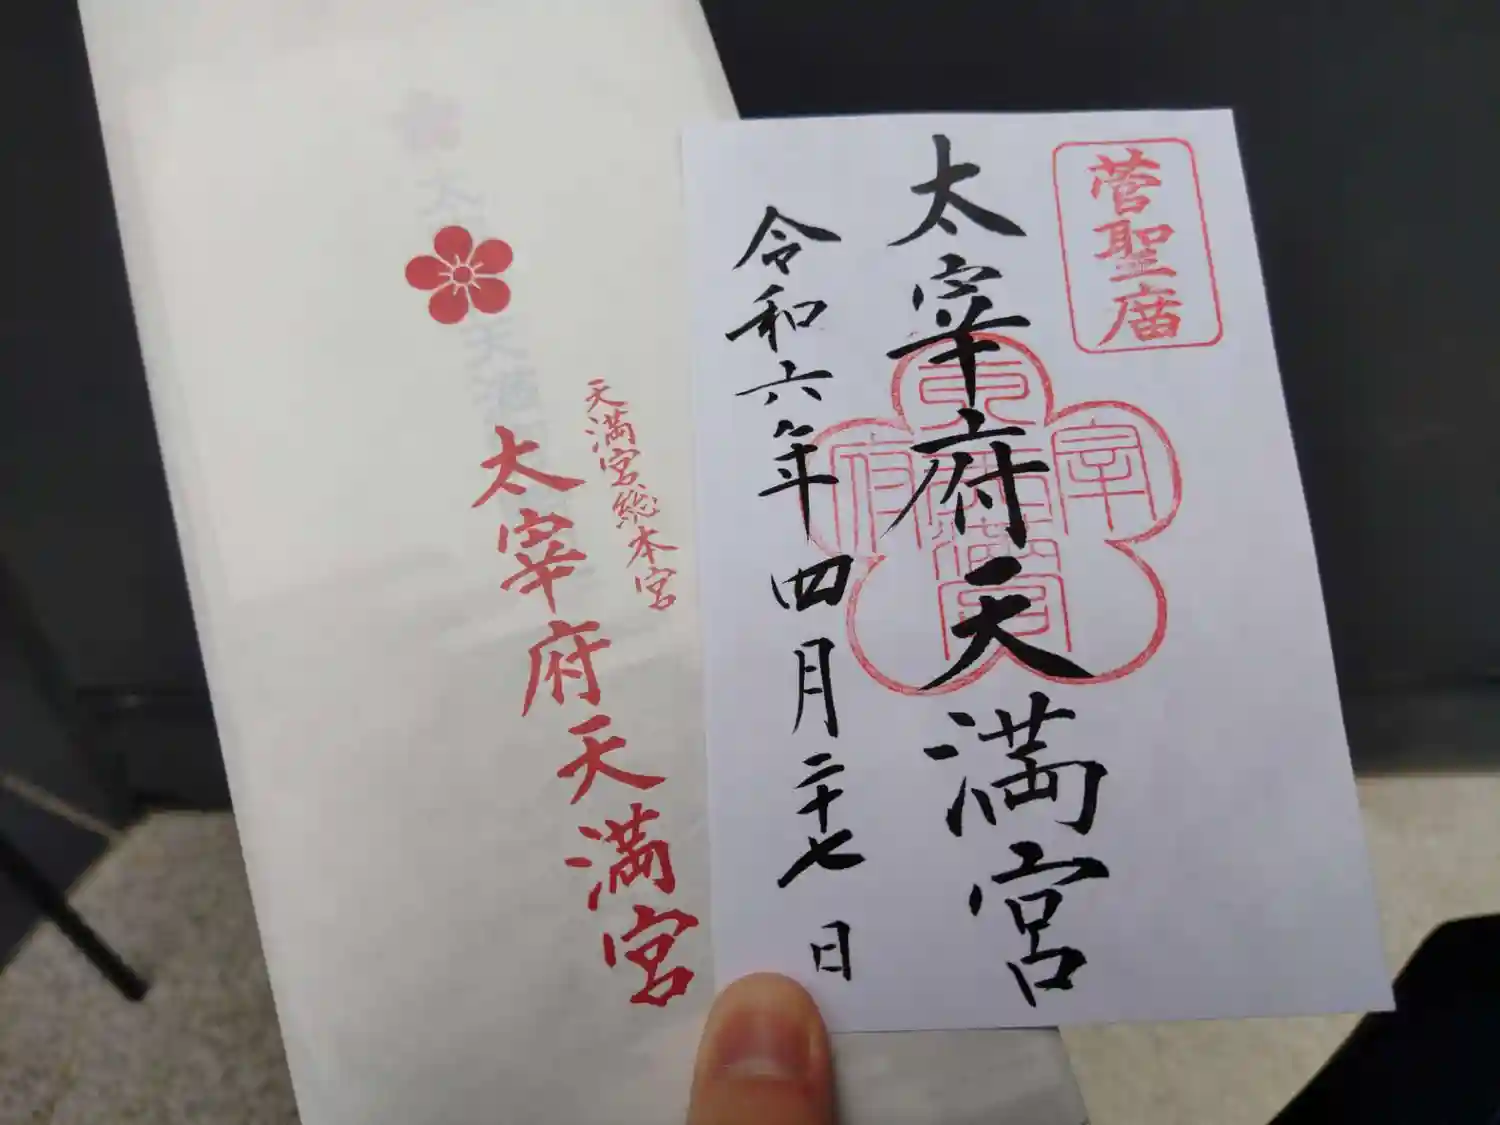 菅聖廟
太宰府天満宮
令和六年四月二十七日
太宰府
天満宮
天満宮総本宮
太宰府天満宮